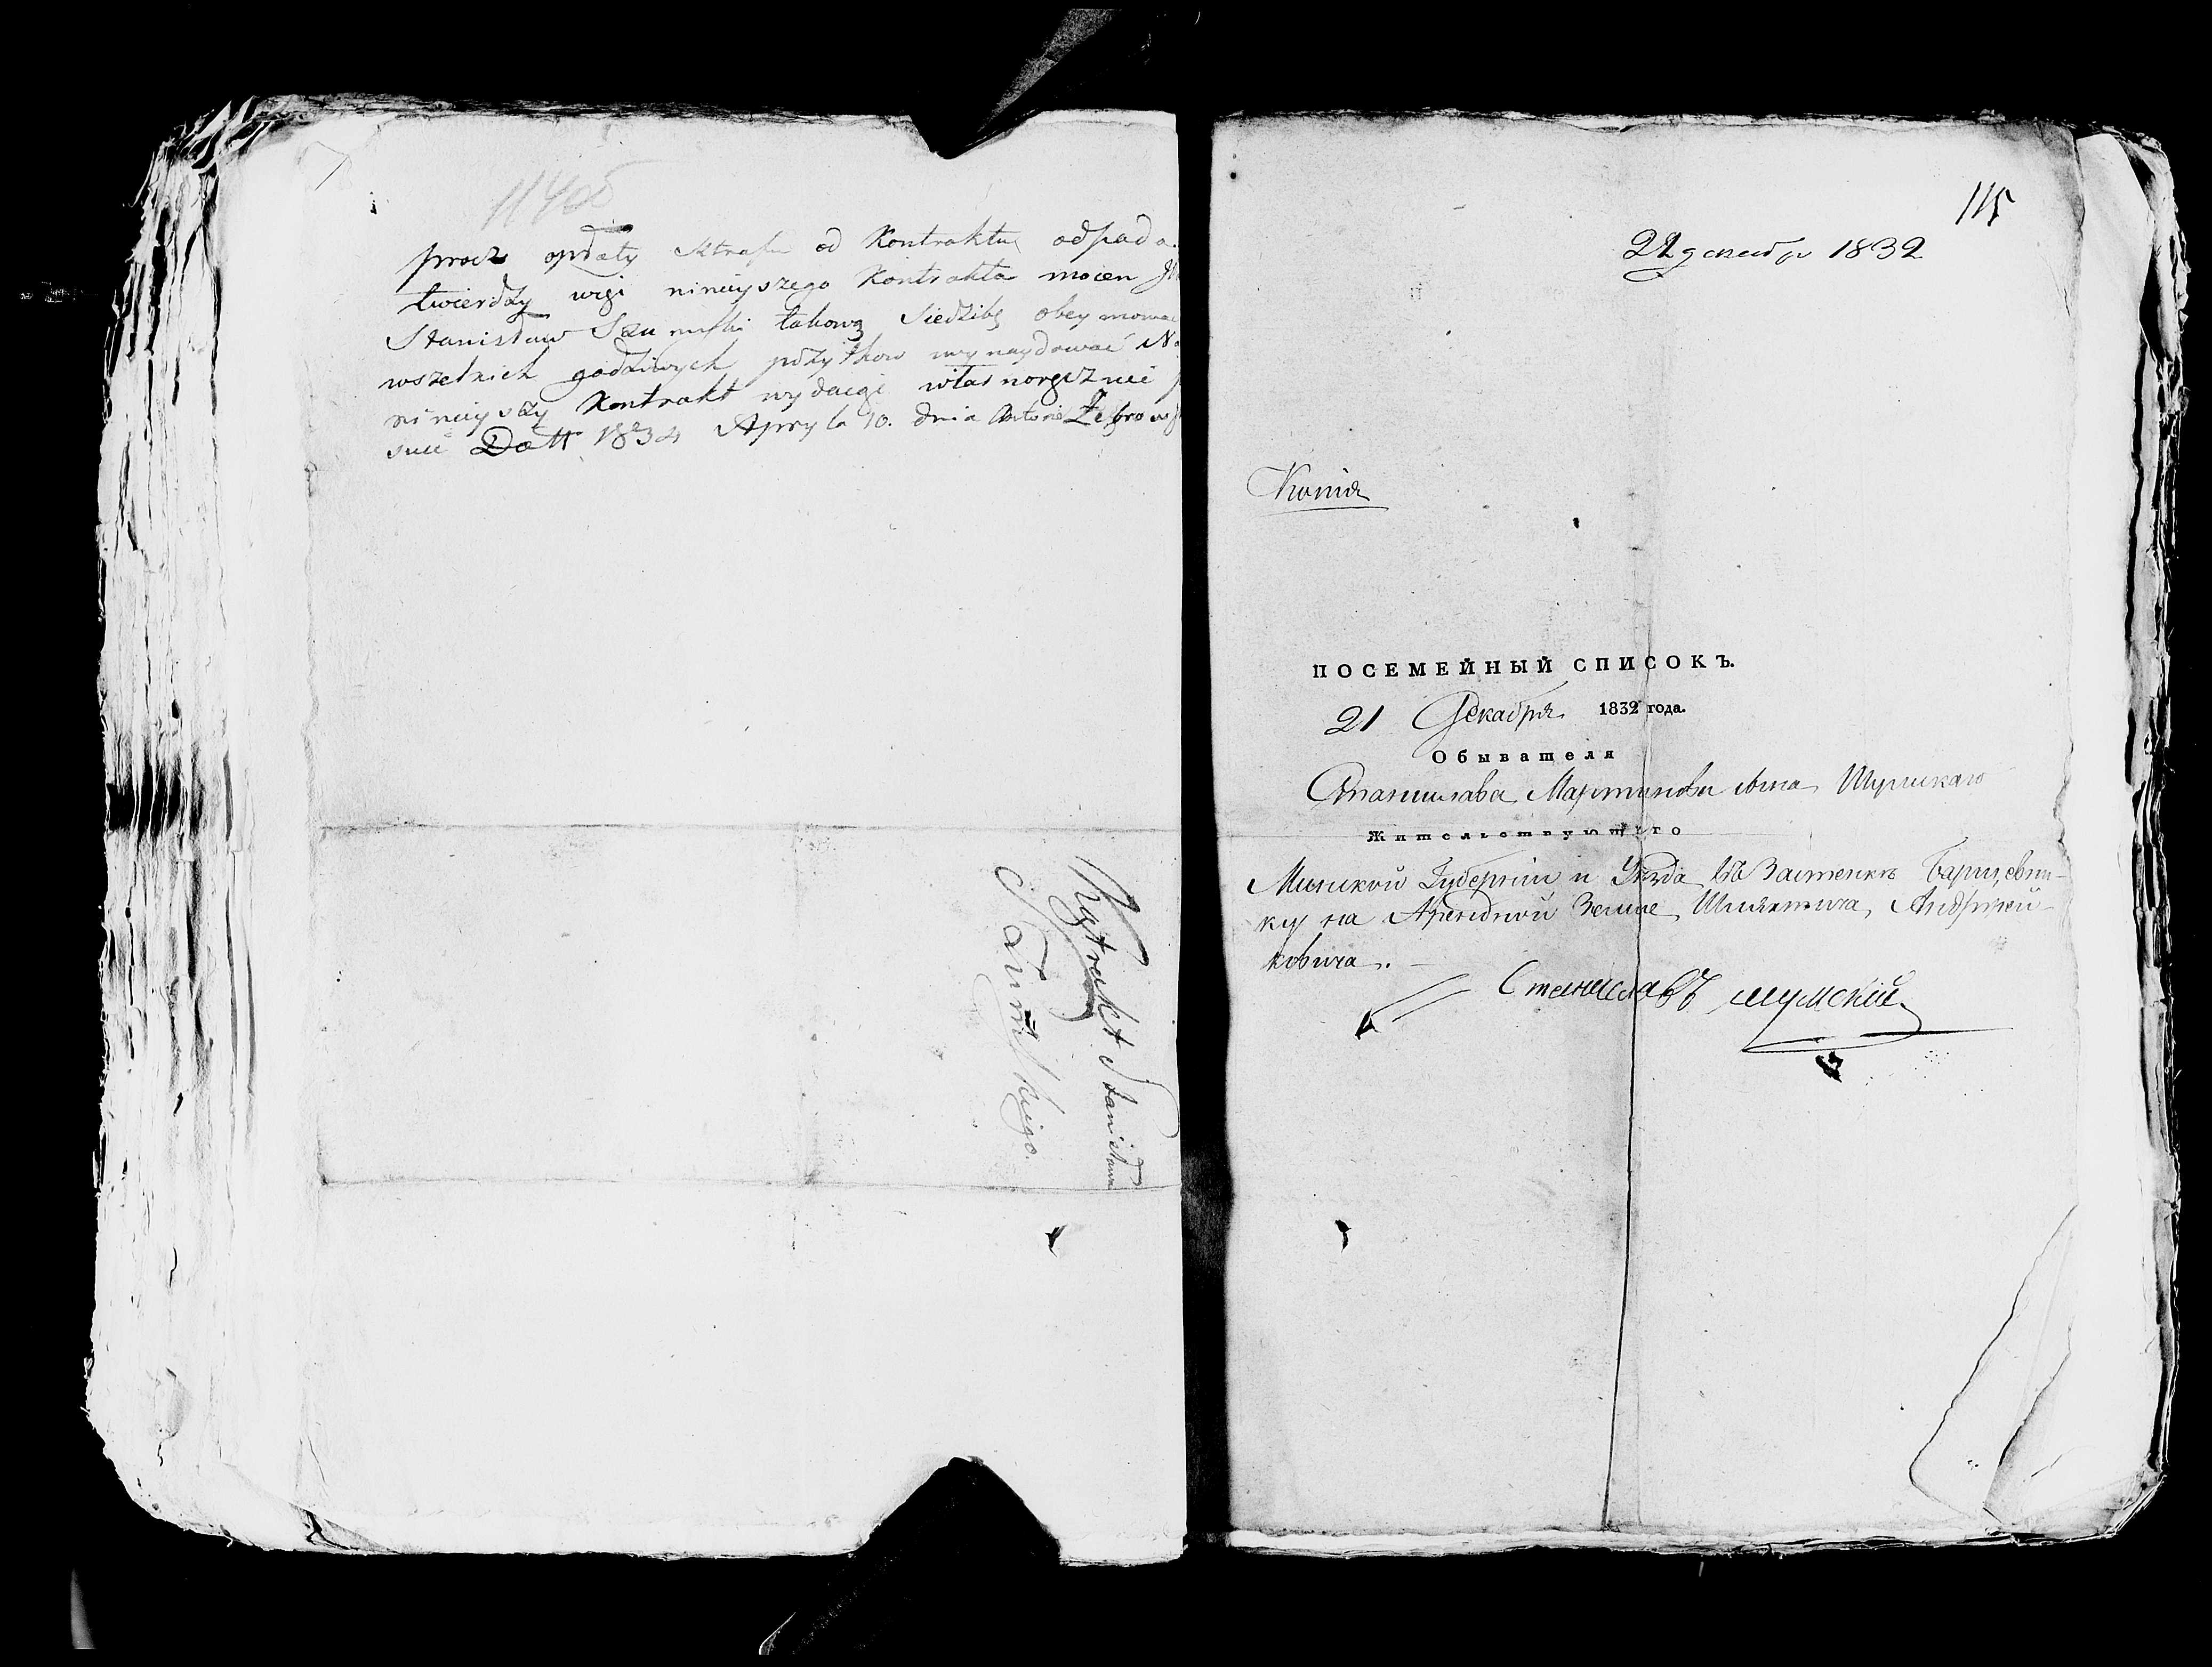 114об
procz opłaty Sztrafu od Kontraktu odpada.
twierdzy wigi ninieyszego Kontrakta mocen
Stanisław Szumski takową Siedzibę obeymować
wszelkich godziwych pożytkow wynaydować
ninieyszy Kontrakt wydaigi własnoręcznie
suie Datt 1834 Apryla 10. dnia Antoni
Kontrakt Stanisława
Szumskiego.
115
22 декабр 1832
Копія
ПОСЕМЕЙНЫЙ СПИСОКЪ.
21 Декабря 1832 года.
Обывателя
Станислава Мартинова сына Шумскаго
Жительствующаго
Минской Губерніи и Уѣзда въ Застенкѣ Барцеви-
ку на Арендной Земле Шляхтича Андржей-
ковича.
Станиславъ шумскій